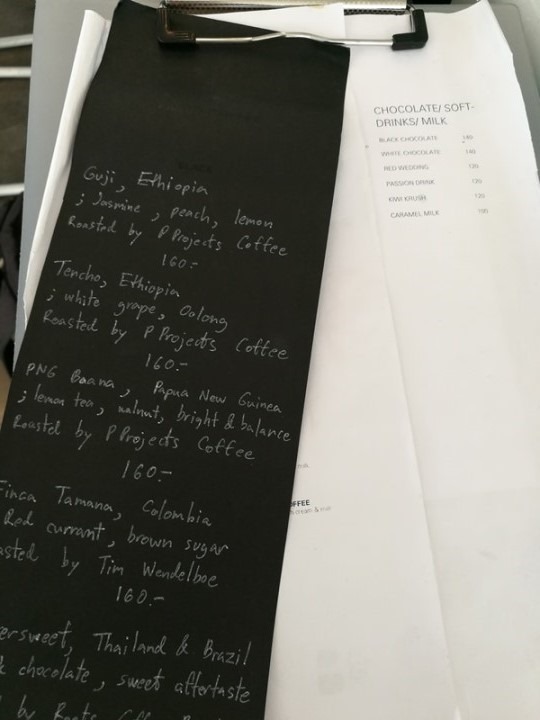 Guji, Ethiopia
; Jasmine, peach, lemon
Roasted by P Projects Coffee
160.-
Tencho, Ethiopia
; white grape, Oolong
Roasted by P Projects Coffee
160.-
PNG Baana, Papua New Guinea
; lemon tea, walnut, bright & balance
Roasted by P Projects Coffee
160.-
Finca Tamana, Colombia
Red currant, brown sugar
asted by Tim Wendelboe
160.-
ersweet, Thailand & Brazil
k chocolate, sweet aftertaste
by Roots Coffee
CHOCOLATE/ SOFT-
DRINKS/ MILK
BLACK CHOCOLATE 140
WHITE CHOCOLATE 140
RED WEDDING 120
PASSION DRINK 120
KIWI KRUSH 120
CARAMEL MILK 100
OFFEE
cream & milk